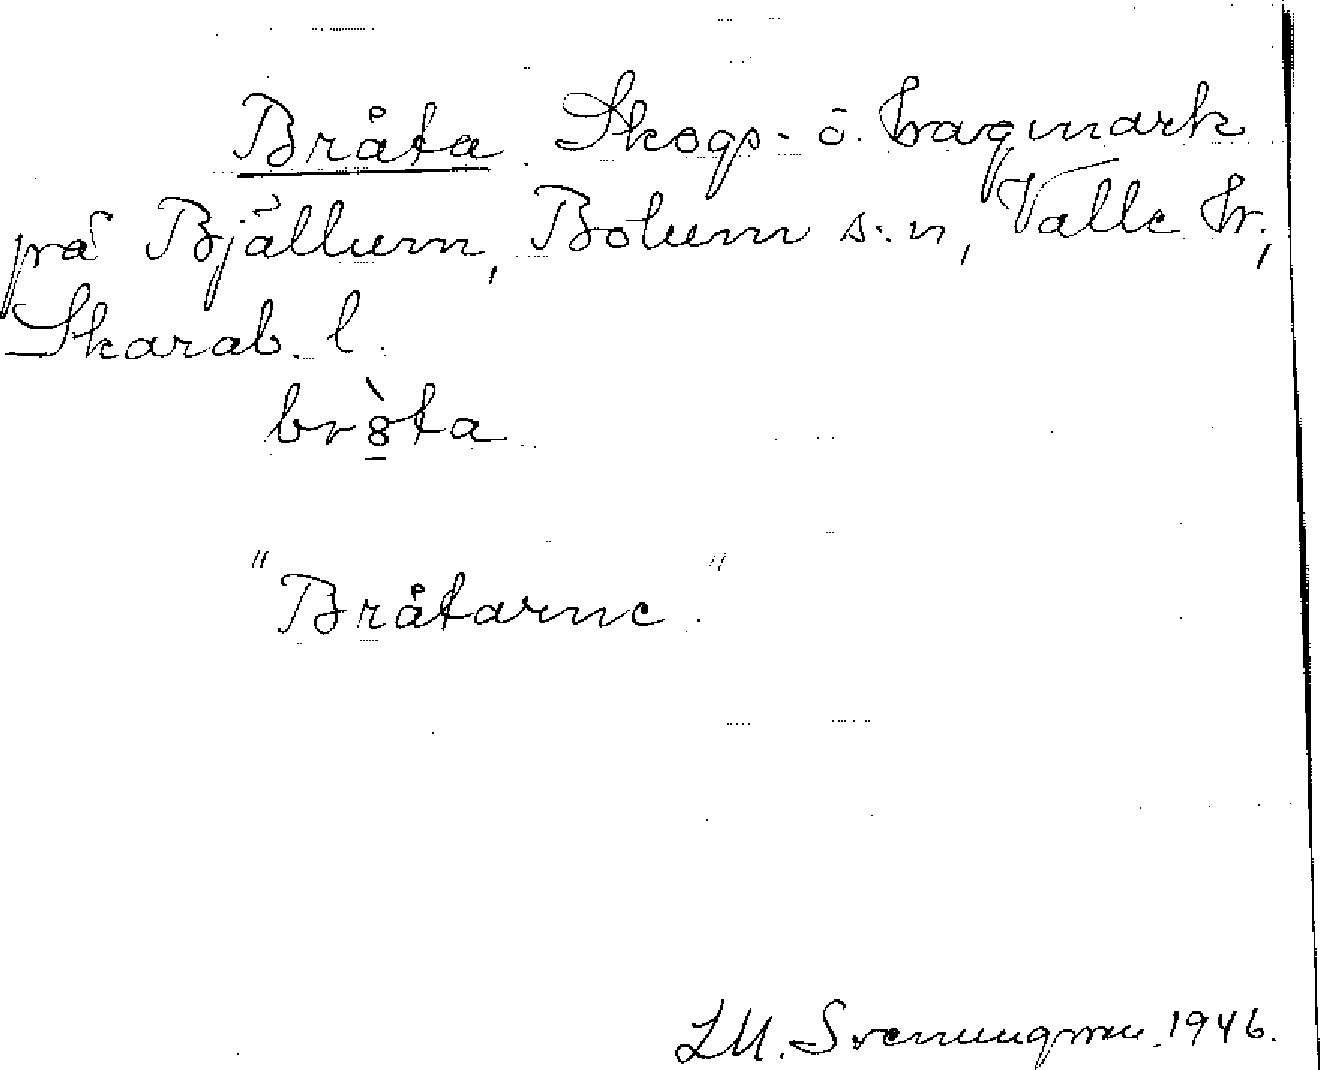 Bråta. Skogs- o. hagmark
på Bjällum, Bolum s:n, Valle hr,
Skarab. l.
br8̠̀ta
"Bråtarne."
1946.